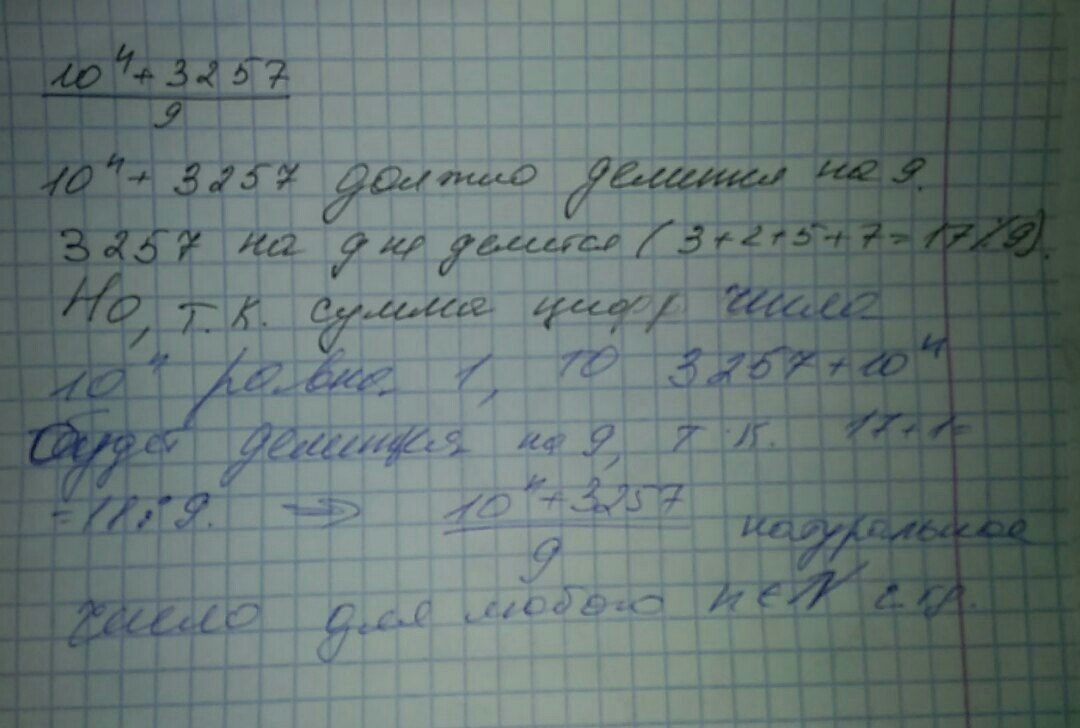 10ⁿ + 3257
9
10ⁿ + 3257 должно делится на 9.
3257 на 9 не делится (3+2+5+7=17 ⋮̸ 9).
Но, т.к. сумма цифр число
10ⁿ равна 1, то 3257+10ⁿ
будет делиться на 9, т.к. 17+1=
=18⋮9. ⇒ 10ⁿ+3257
9 натуральное
число для любого n∈N ч.тр.